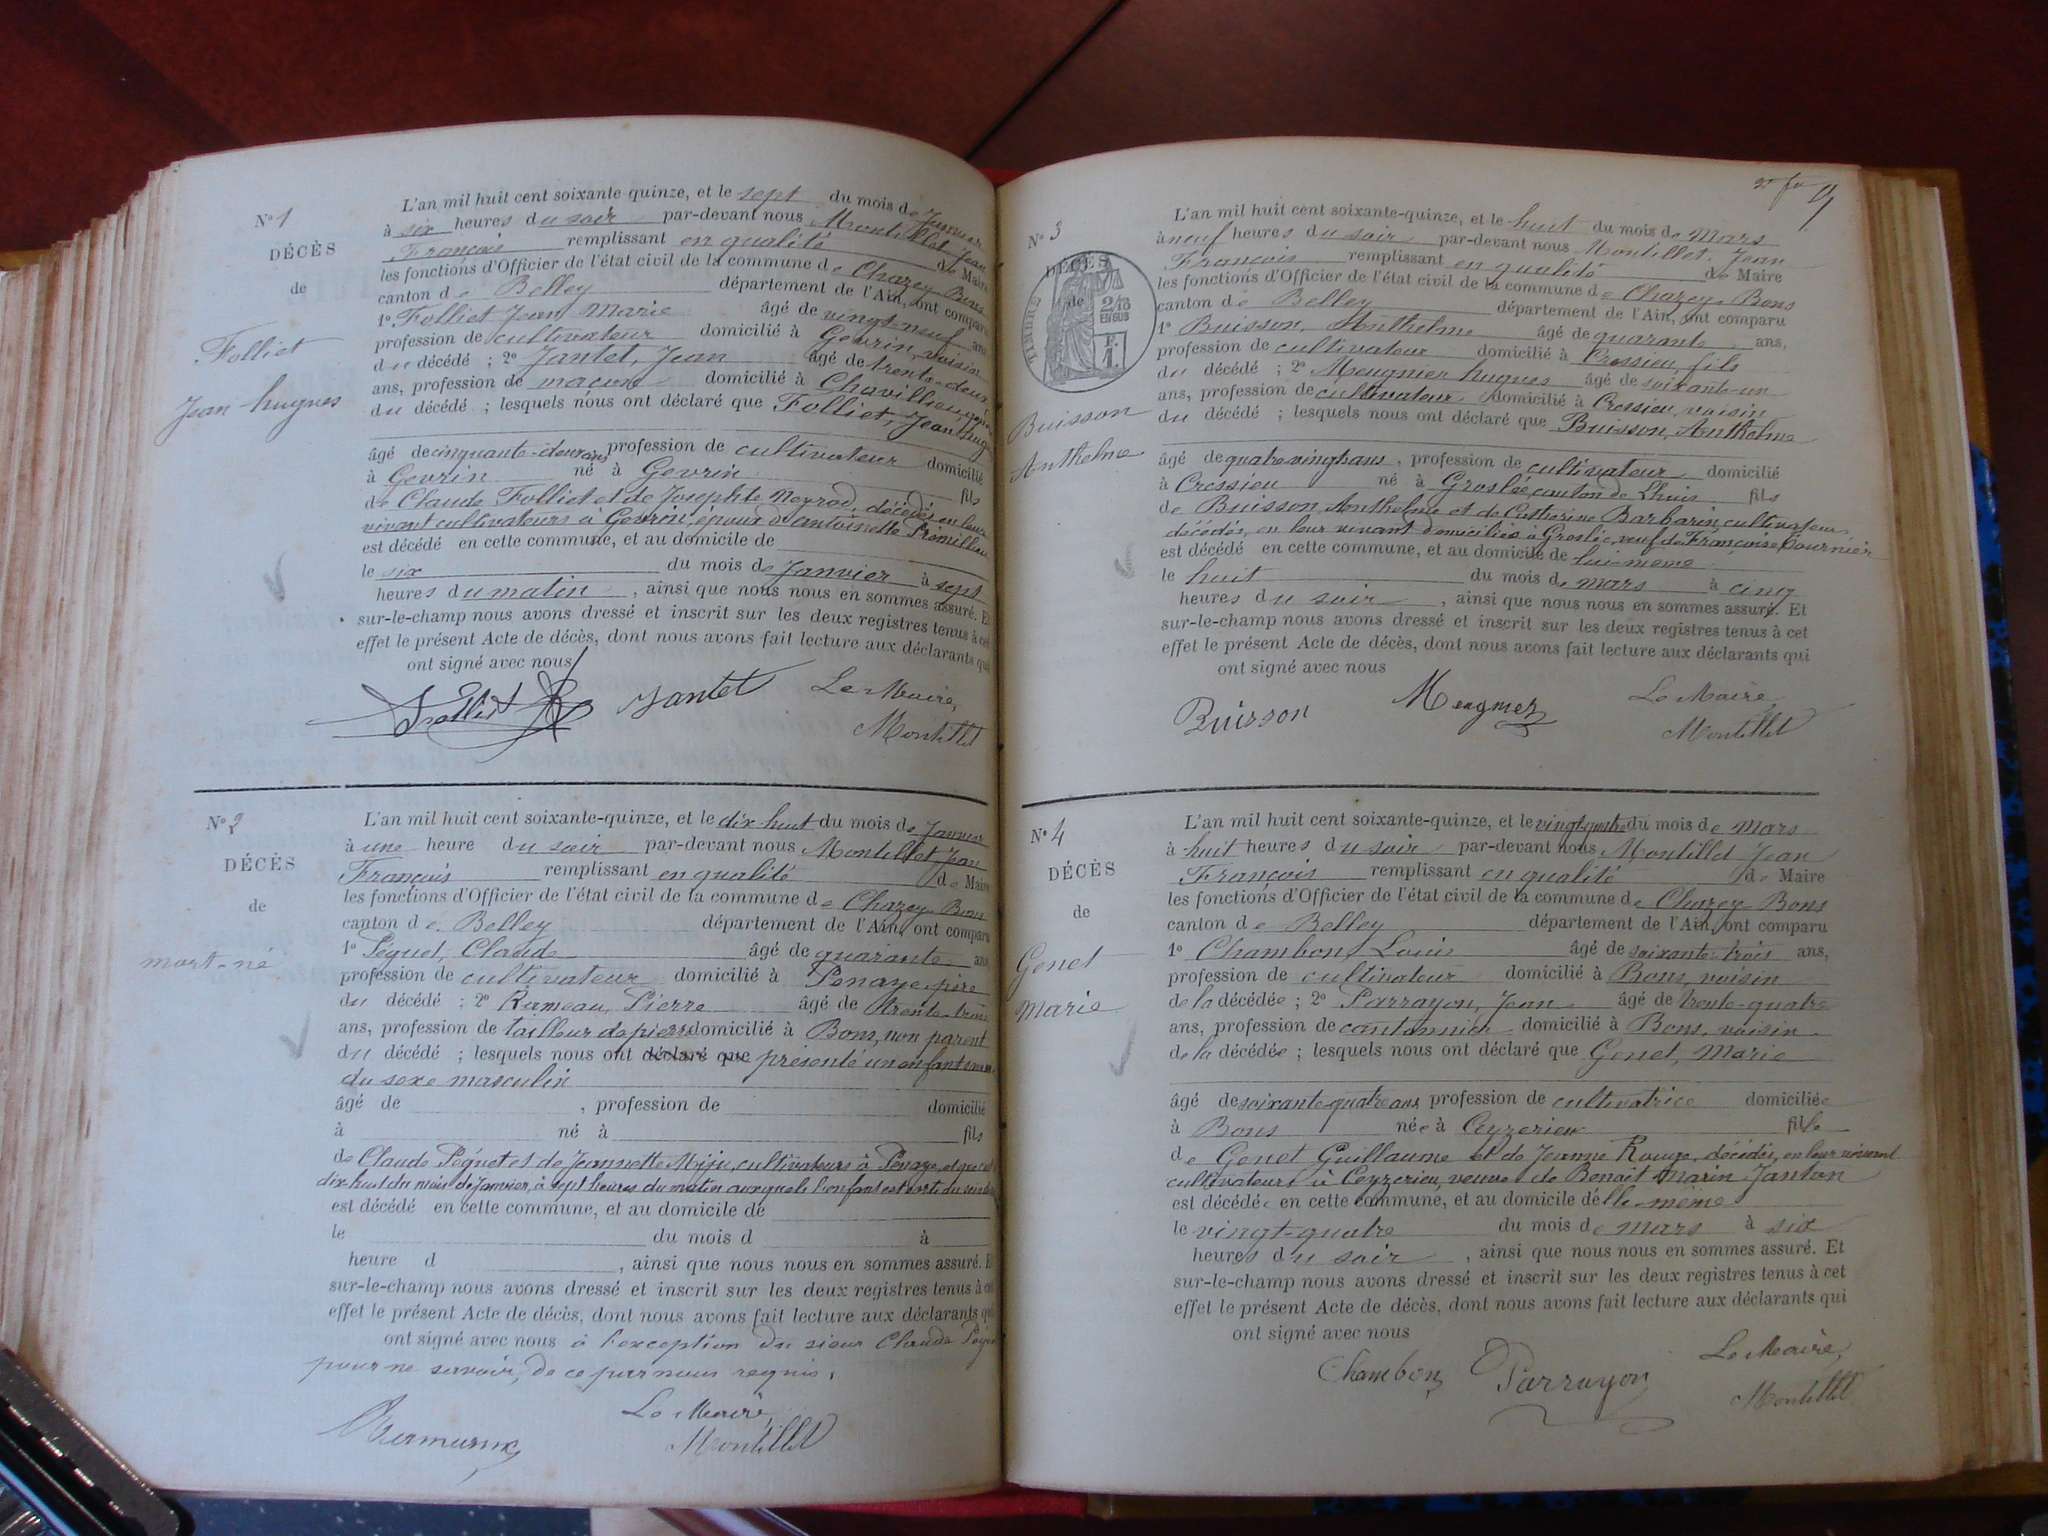 N° 1
DÉCÈS
de
Folliet
Jean hugues
L'an mil huit cent soixante-quinze, et le sept du mois de Janvier
à six heures du soir par-devant nous Montillet Jean
François remplissant en qualité de Maire
les fonctions d'Officier de l'état civil de la commune de Chazey-Bons
canton de Belley département de l'Ain, ont comparu
1° Folliet Jean Marie âgé de vingt-neuf ans
profession de cultivateur domicilié à Gevrin, voisin
du décédé ; 2° Jantet, Jean âgé de trente-deux
ans, profession de maçon domicilié à Chavillieu
du décédé ; lesquels nous ont déclaré que Folliet, Jean Hugues
âgé de cinquante-deux ans profession de cultivateur domicilié
à Gevrin né à Gevrin fils
de Claude Folliet et de Josephte Neyrod, décédés en leur
vivant cultivateurs à Gevrin, époux de antoinette Promillieu
est décédé en cette commune, et au domicile de
le six du mois de Janvier à sept
heures du matin, ainsi que nous nous en sommes assuré. Et
sur-le-champ nous avons dressé et inscrit sur les deux registres tenus à cet
effet le présent Acte de décès, dont nous avons fait lecture aux déclarants qui
ont signé avec nous
Folliet Jantet Le Maire,
Montillet
N° 2
DÉCÈS
de
mort-né
L'an mil huit cent soixante-quinze, et le dix huit du mois de Janvier
à une heure du soir par-devant nous Montillet Jean
François remplissant en qualité de Maire
les fonctions d'Officier de l'état civil de la commune de Chazey-Bons
canton de Belley département de l'Ain, ont comparu
1° Péguet, Claude âgé de quarante ans,
profession de cultivateur domicilié à Penaye père
du décédé ; 2° Rameau, Pierre âgé de trente-trois
ans, profession de tailleur de pierre domicilié à Bons, non parent
du décédé ; lesquels nous ont déclaré que présenté un enfant
du sexe masculin
âgé de , profession de domicilié
à né à fils
de Claude Péguet et de Jeannette Miju, cultivateurs à Penaye, et que
dix-huit du mois de Janvier, à sept heures du matin l'enfant est sorti du
est décédé en cette commune, et au domicile de
le du mois d à
heure d , ainsi que nous nous en sommes assuré. Et
sur-le-champ nous avons dressé et inscrit sur les deux registres tenus à cet
effet le présent Acte de décès, dont nous avons fait lecture aux déclarants qui
ont signé avec nous à l'exception du sieur Claude Péguet
pour ne savoir, de ce par nous requis.
Le Maire,
Montillet
N° 3
DÉCÈS
de
TIMBRE
2/10
EN SUS
Buisson
Anthelme
L'an mil huit cent soixante-quinze, et le huit du mois de Mars
à neuf heures du soir par-devant nous Montillet, Jean
François remplissant en qualité de Maire
les fonctions d'Officier de l'état civil de la commune de Chazey-Bons
canton de Belley département de l'Ain, ont comparu
1° Buisson, Anthelme âgé de quarante ans,
profession de cultivateur domicilié à Cressieu, fils
du décédé ; 2° Meugnier hugues âgé de soixante-un
ans, profession de cultivateur domicilié à Cressieu, voisin
du décédé ; lesquels nous ont déclaré que Buisson, Anthelme
âgé de quatre vingts ans, profession de cultivateur domicilié
à Cressieu né à Groslée, canton de Lhuis fils
de Buisson Anthelme et de Catherine Barbarin, cultivateurs
décédés, en leur vivant domiciliés à Groslée, veuf de Françoise Tournier
est décédé en cette commune, et au domicile de lui-même
le huit du mois de mars à cinq
heures du soir, ainsi que nous nous en sommes assuré. Et
sur-le-champ nous avons dressé et inscrit sur les deux registres tenus à cet
effet le présent Acte de décès, dont nous avons fait lecture aux déclarants qui
ont signé avec nous
Buisson Meugnier Le Maire,
Montillet
N° 4
DÉCÈS
de
Genet
Marie
L'an mil huit cent soixante-quinze, et le vingt quatre du mois de Mars
à huit heures du soir par-devant nous Montillet Jean
François remplissant en qualité de Maire
les fonctions d'Officier de l'état civil de la commune de Chazey-Bons
canton de Belley département de l'Ain, ont comparu
1° Chambon, Louis âgé de soixante-trois ans,
profession de cultivateur domicilié à Bons, voisin
de la décédée ; 2° Parrayon, Jean âgé de trente-quatre
ans, profession de cantonnier domicilié à Bons, voisin
de la décédée ; lesquels nous ont déclaré que Genet, Marie
âgée de soixante quatre ans, profession de cultivatrice domiciliée
à Bons née à Ceyzerieu fille
de Genet Guillaume et de Jeanne Rouge, décédés, en leur vivant
cultivateurs à Ceyzerieu, veuve de Benoit Marin Janton
est décédée en cette commune, et au domicile d'elle-même
le vingt-quatre du mois de mars à six
heures du soir, ainsi que nous nous en sommes assuré. Et
sur-le-champ nous avons dressé et inscrit sur les deux registres tenus à cet
effet le présent Acte de décès, dont nous avons fait lecture aux déclarants qui
ont signé avec nous
Chambon Parrayon Le Maire,
Montillet